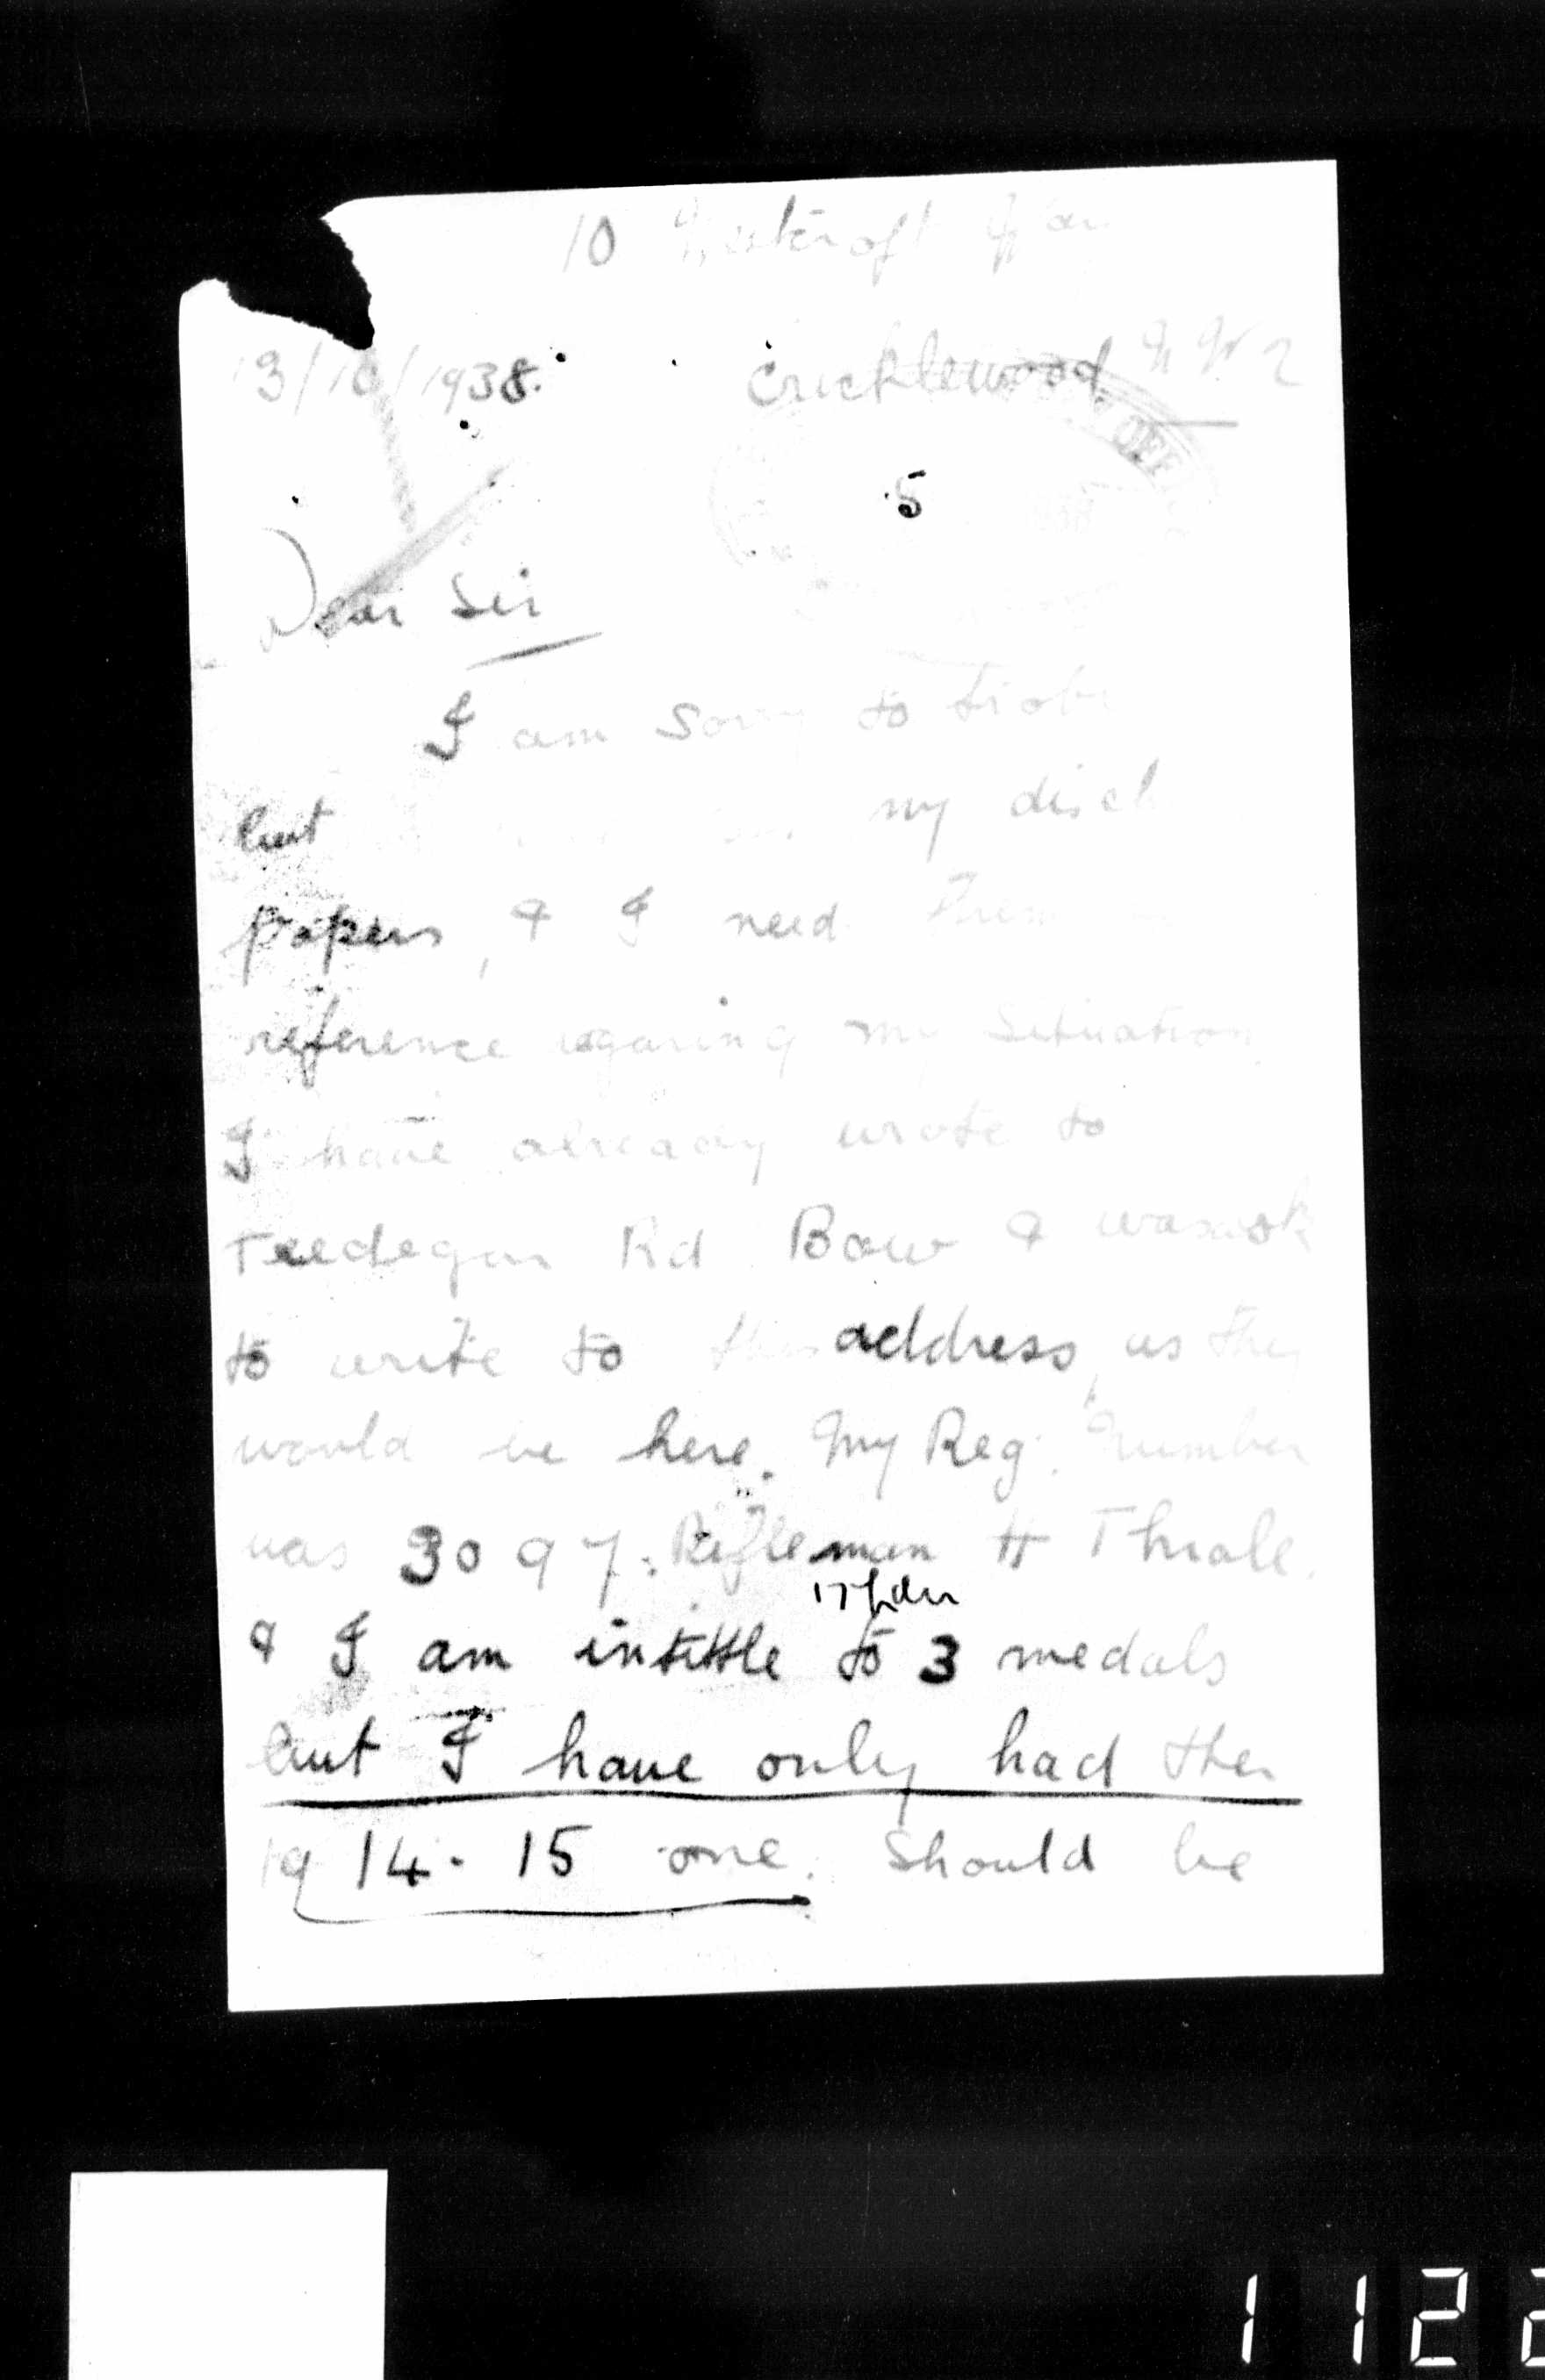 10
13/10/1938. Cricklewood N W 2
OFF
5
Dear Sir
I am Sorry to
but my
papers, & I need them
reference regaring my Situation
I have already wrote to
Treedegar Rd Bow & was
to write to this address, as they
would be here. My Reg. Number
was 3097. Rifleman H Thrale.
17 Ldn
& I am intittle to 3 medals
but I have only had the
1914-15 one. Should be
1122